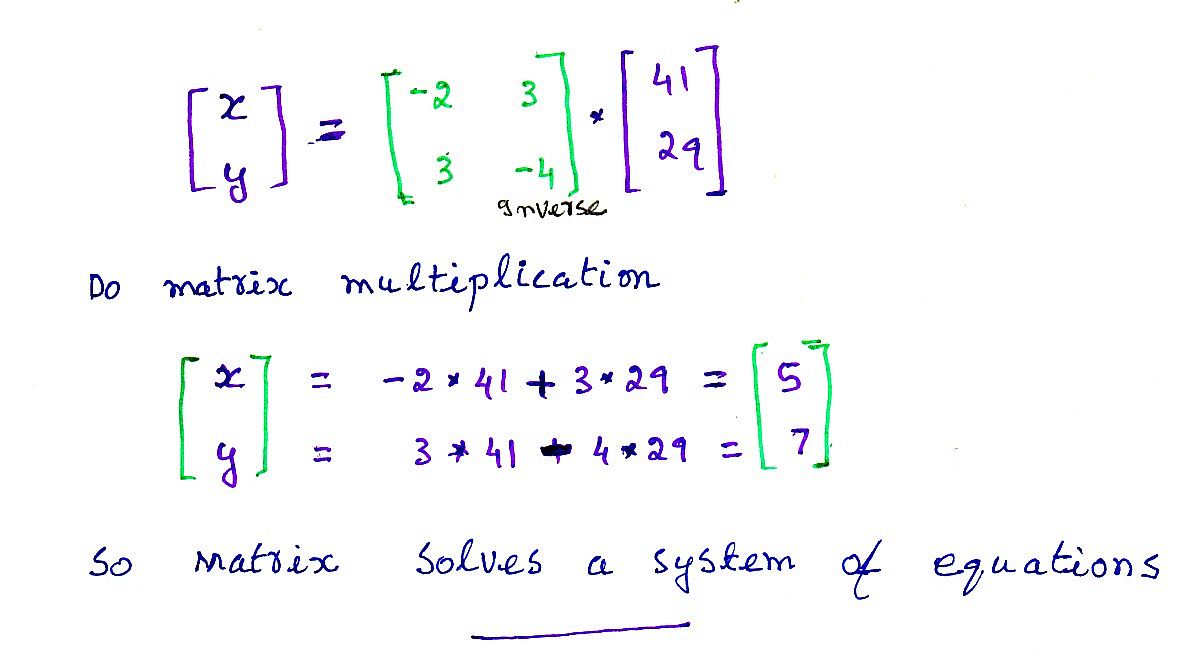 [x y] = [-2 3 3 -4] * [41 29]
Inverse
Do matrix multiplication
x = -2 * 41 + 3 * 29 = 5
y = 3 * 41 - 4 * 29 = 7
So Matrix Solves a system of equations